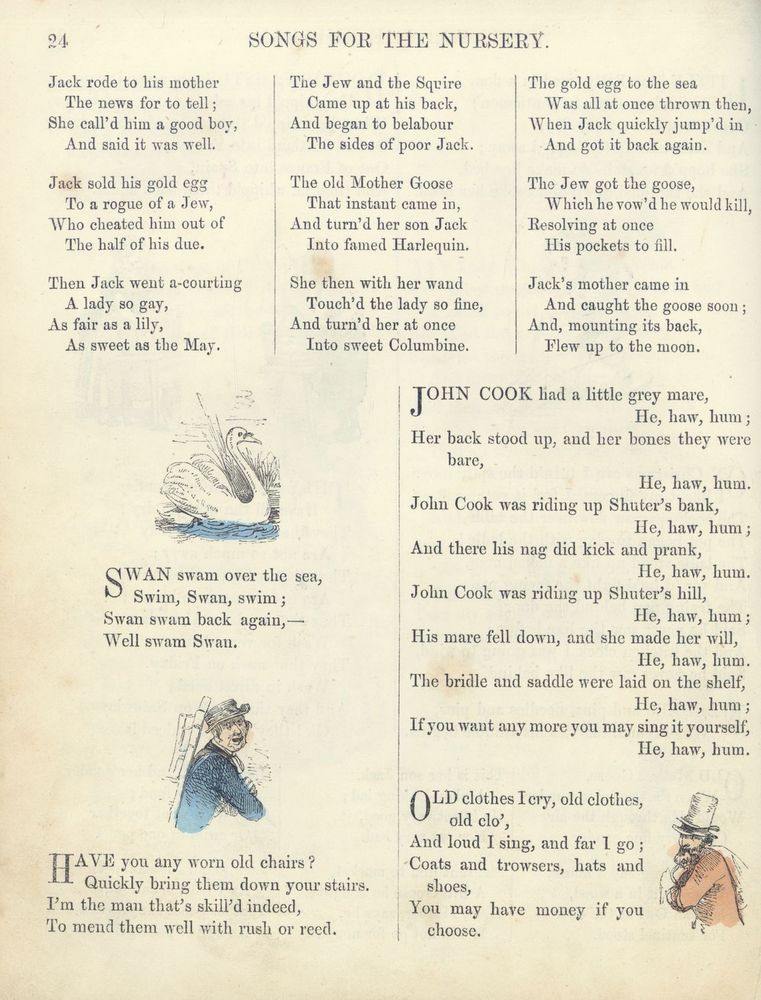 24
SONGS FOR THE NURSERY.
Jack rode to his mother
The news for to tell;
She call'd him a good boy,
And said it was well.
Jack sold his gold egg
To a rogue of a Jew,
Who cheated him out of
The half of his due.
Then Jack went a-courting
A lady so gay,
As fair as a lily,
As sweet as the May.
The Jew and the Squire
Came up at his back,
And began to belabour
The sides of poor Jack.
The old Mother Goose
That instant came in,
And turn'd her son Jack
Into famed Harlequin.
She then with her wand
Touch'd the lady so fine,
And turn'd her at once
Into sweet Columbine.
The gold egg to the sea
Was all at once thrown then,
When Jack quickly jump'd in
And got it back again.
The Jew got the goose,
Which he vow'd he would kill,
Resolving at once
His pockets to fill.
Jack's mother came in
And caught the goose soon;
And, mounting its back,
Flew up to the moon.
SWAN swam over the sea,
Swim, Swan, swim;
Swan swam back again,—
Well swam Swan.
HAVE you any worn old chairs?
Quickly bring them down your stairs.
I'm the man that's skill'd indeed,
To mend them well with rush or reed.
JOHN COOK had a little grey mare,
He, haw, hum;
Her back stood up, and her bones they were
bare,
He, haw, hum.
John Cook was riding up Shuter's bank,
He, haw, hum;
And there his nag did kick and prank,
He, haw, hum.
John Cook was riding up Shuter's hill,
He, haw, hum;
His mare fell down, and she made her will,
He, haw, hum.
The bridle and saddle were laid on the shelf,
He, haw, hum;
If you want any more you may sing it yourself,
He, haw, hum.
OLD clothes I cry, old clothes,
old clo',
And loud I sing, and far I go;
Coats and trowsers, hats and
shoes,
You may have money if you
choose.